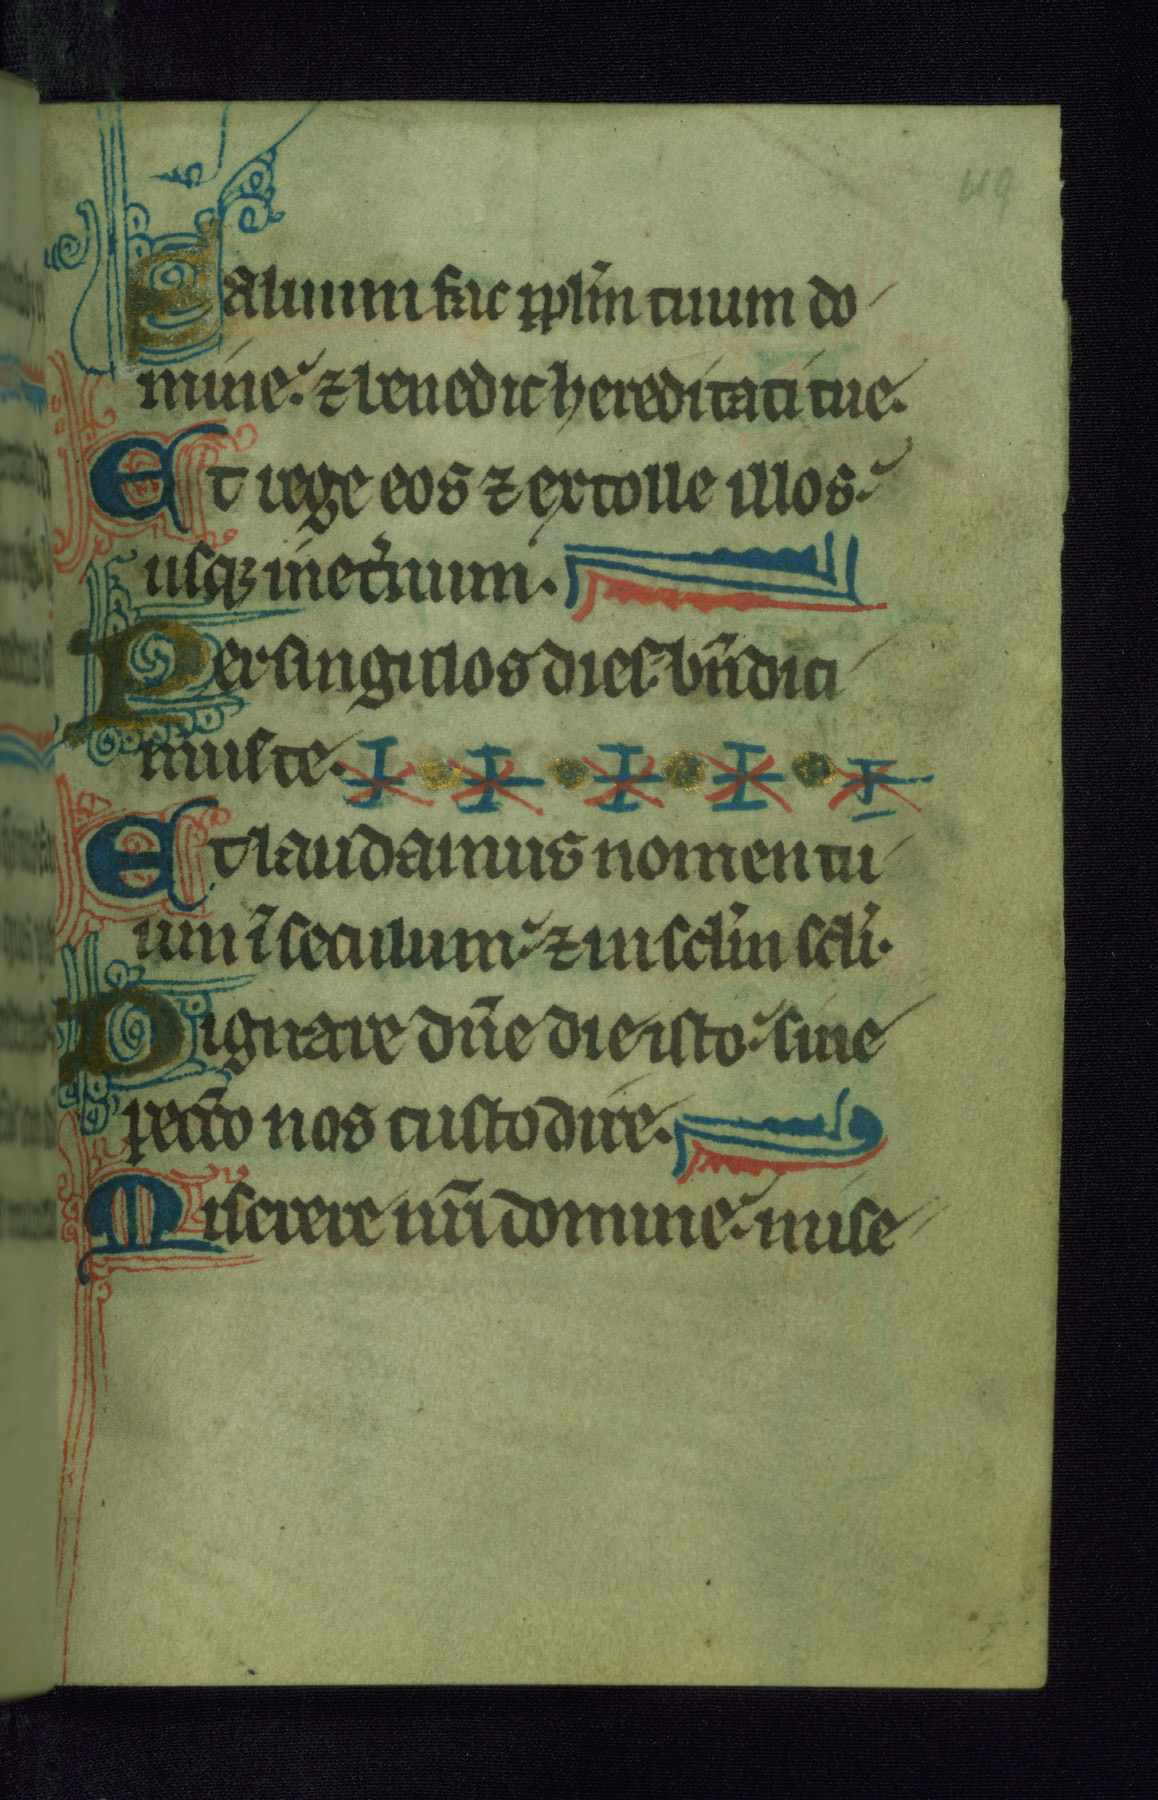 119
Saluum fac pplm̄ tuum do
mine. ⁊ benedic hereditati tue.
Et rege eos ⁊ extolle illos.
usqꝫ inet̄nuum.
Per singulos dies bn̄dici
muste.
Et laudamus nomen tu
um ī seculum ⁊ in sclm̄ scli̅.
Dignare dn̄e die isto sine
pecc̄o nos custodire.
Miserere nr̄i domine. mise